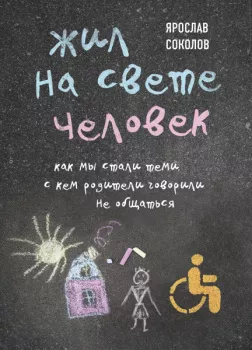 ЯРОСЛАВ
СОКОЛОВ
жил
на свете
человек
как мы стали теми
с кем родители говорили
не общаться